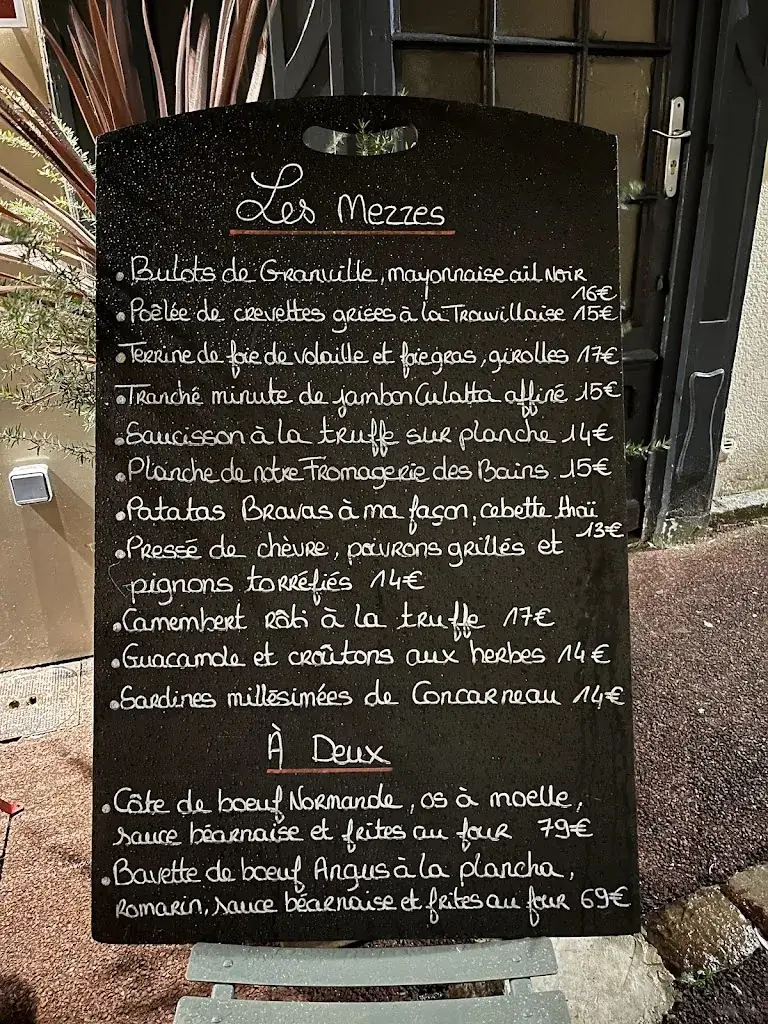 Les Mezzes
• Bulots de Granville, mayonnaise ail Noir
16€
• Poêlée de crevettes grises à la Trouvillaise 15€
• Terrine de foie de volaille et foie gras, girolles 17€
• Tranché minute de jambon Culatta affiné 15€
• Saucisson à la truffe sur planche 14€
• Planche de notre Fromagerie des Bains 15€
• Patatas Bravas à ma façon, cebette thaï
13€
• Pressé de chèvre, poivrons grillés et
pignons torréfiés 14€
• Camembert rôti à la truffe 17€
• Guacamole et croûtons aux herbes 14€
• Sardines millésimées de Concarneau 14€
À Deux
• Côte de boeuf Normande, os à moelle,
sauce béarnaise et frites au four 79€
• Bavette de boeuf Angus à la plancha,
Romarin, sauce béarnaise et frites au four 69€